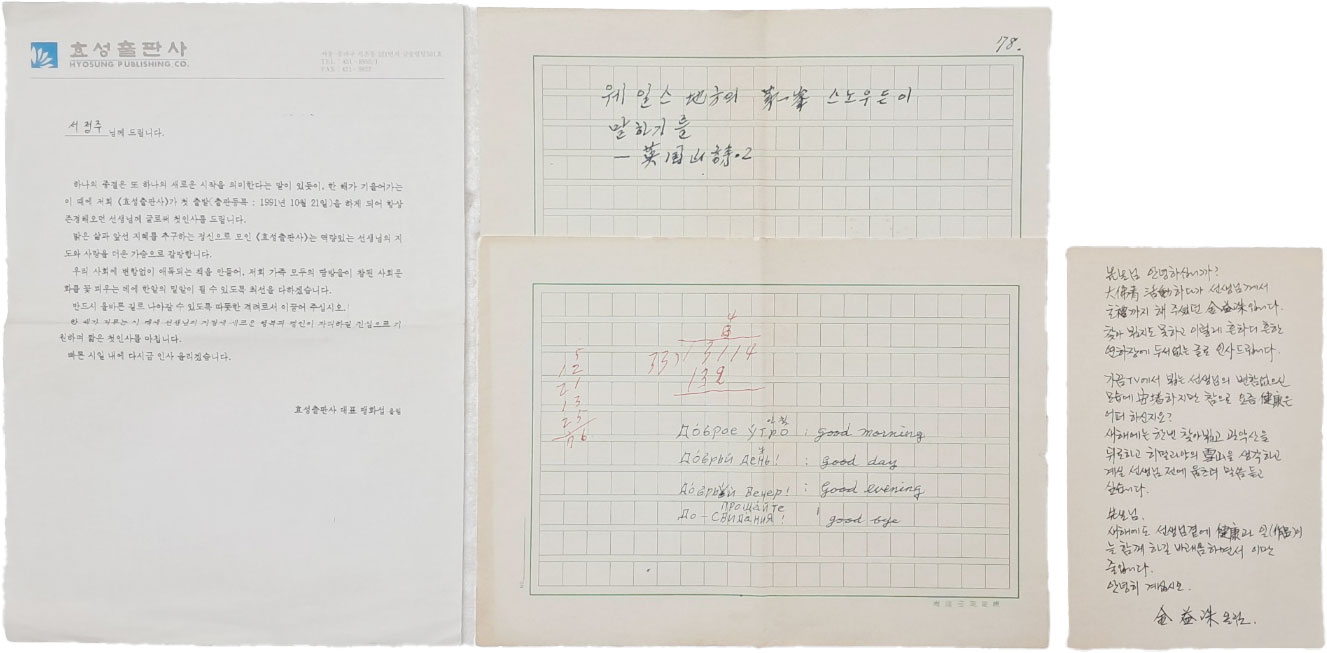 효성출판사
HYOSUNG PUBLISHING CO.
TEL :
FAX :
서 정주 님께 드립니다.
하나의 종결은 또 하나의 새로운 시작을 의미한다는 말이 있듯이, 한 해가 기울어가는
이 때에 저희 《효성출판사》가 첫 출발[출판등록 : 1991년 10월 21일]을 하게 되어 항상
존경해오던 선생님께 글로써 첫인사를 드립니다.
맑은 삶과 앞선 지혜를 추구하는 정신으로 모인 《효성출판사》는 역량있는 선생님의 지
도와 사랑을 더운 가슴으로 갈망합니다.
우리 사회에 변함없이 애독되는 책을 만들어, 저희 가족 모두의 땀방울이 참된 사회문
화를 꽃 피우는 데에 한알의 밀알이 될 수 있도록 최선을 다하겠습니다.
반드시 올바른 길로 나아갈 수 있도록 따뜻한 격려로서 이끌어 주십시오.
한 해가 저무는 이 때에 선생님의 가정에 새로운 행복과 평안이 자리하길 진심으로 기
원하며 짧은 첫인사를 마칩니다.
빠른 시일 내에 다시금 인사 올리겠습니다.
효성출판사 대표 올림
78.
웨일스 地方의 第一峯 스노우든이
말하기를
— 英国山詩·2
4
5
12
21
13
25
76
33 ) 3114
132
Доброе утро : good morning
Добрый день! : Good day
Добрый Вечер! : Good evening
прощайте
До-Свидания! good bye
先生님 안녕하십니까?
大佛靑 活動하다가 선생님께서
主禮까지 해 주셨던 金益洙입니다.
찾아 뵙지도 못하고 이렇게 흔하디 흔한
연하장에 두서없는 글로 인사드립니다.
가끔 TV에서 뵙는 선생님의 변함없으신
모습에 安堵하지만 참으로 요즘 健康은
어떠 하신지요?
새해에는 한번 찾아뵙고 관악산을
뒤로하고 히말라야의 雪山을 생각하고
계실 선생님 전에 말씀 듣고
싶습니다.
先生님.
새해에도 선생님곁에 健康과
늘 함께 하길 바래옵하면서 이만
줄입니다.
안녕히 계십시오.
金益洙 올림.